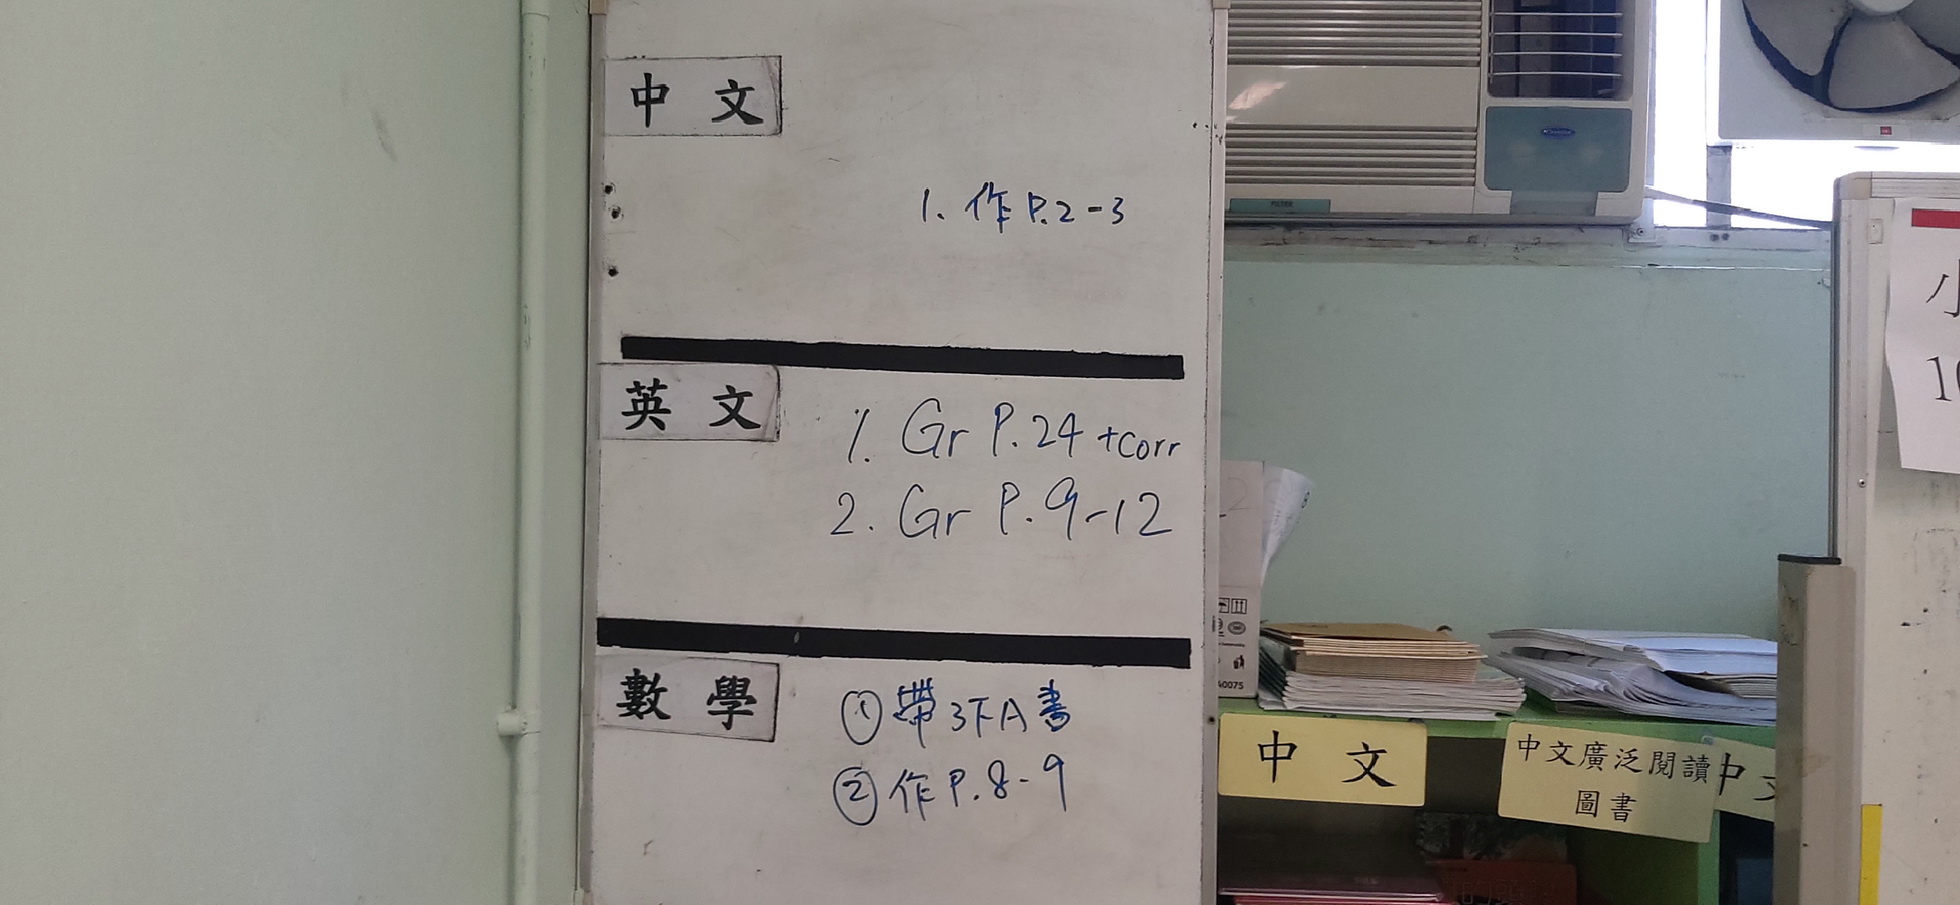 中文
1. 作 P.2-3
英文
1. Gr P.24 +corr
2. Gr P.9-12
數學
① 帶3下A書
② 作 P.8-9
FILTER
小
40075
中文
中文廣泛閱讀
圖書
中文